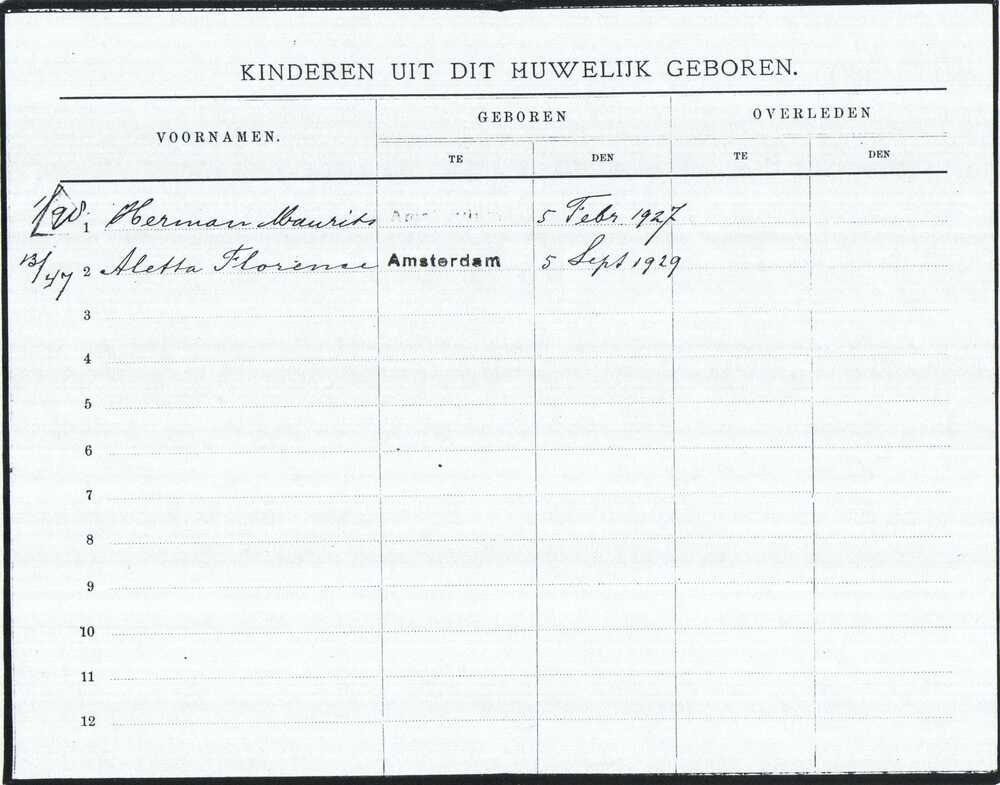 KINDEREN UIT DIT HUWELIJK GEBOREN.
VOORNAMEN. GEBOREN OVERLEDEN
TE DEN TE DEN
1 Herman Maurits 5 Febr 1927
13/47 2 Aletta Florence Amsterdam 5 Sept 1929
3
4
5
6
7
8
9
10
11
12